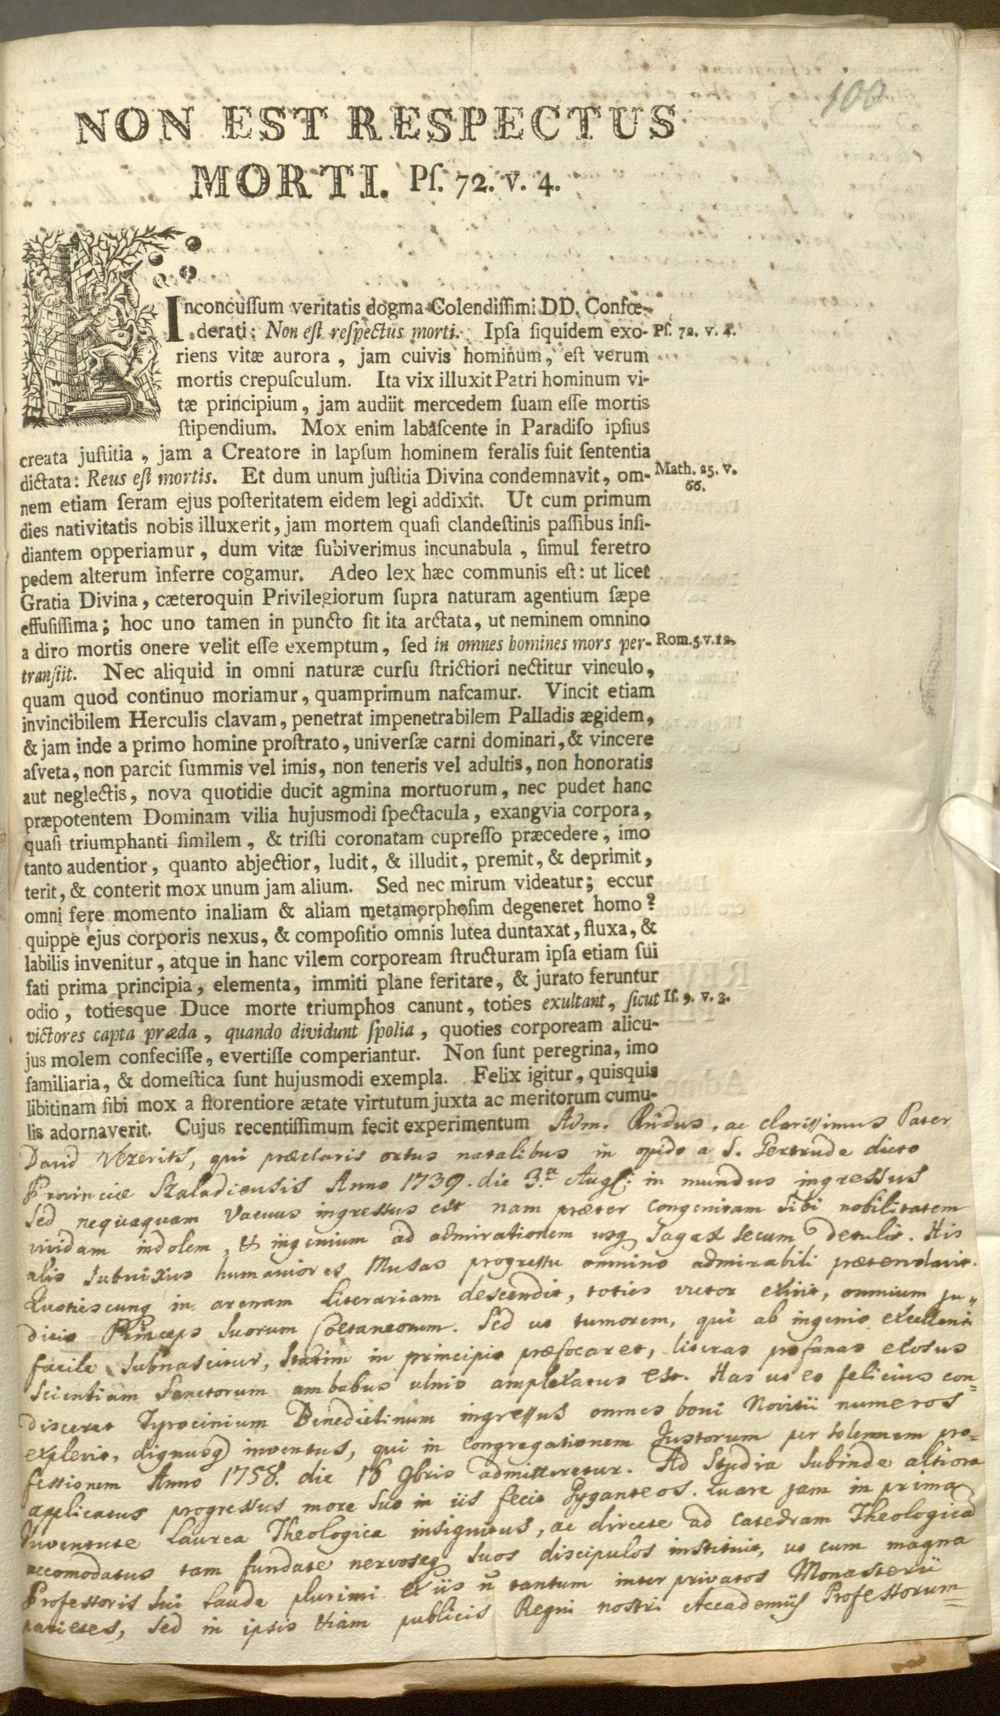 100
NON EST RESPECTUS
MORTI. Pſ. 72. v. 4.
Inconcuſſum veritatis dogma Colendiſſimi DD. Confœ-
derati: Non eſt reſpectus morti. Ipſa ſiquidem exo- Pſ. 72. v. 4.
riens vitæ aurora, jam cuivis hominum, eſt verum
mortis crepuſculum. Ita vix illuxit Patri hominum vi-
tæ principium, jam audiit mercedem ſuam eſſe mortis
ſtipendium. Mox enim labaſcente in Paradiſo ipſius
creata juſtitia, jam a Creatore in lapſum hominem feralis fuit ſententia
dictata: Reus eſt mortis. Et dum unum juſtitia Divina condemnavit, om- Math. 25. v.
66.
nem etiam ſeram ejus poſteritatem eidem legi addixit. Ut cum primum
dies nativitatis nobis illuxerit, jam mortem quaſi clandeſtinis paſſibus inſi-
diantem opperiamur, dum vitæ ſubiverimus incunabula, ſimul feretro
pedem alterum inferre cogamur. Adeo lex hæc communis eſt: ut licet
Gratia Divina, cæteroquin Privilegiorum ſupra naturam agentium ſæpe
effuſiſſima; hoc uno tamen in puncto ſit ita arctata, ut neminem omnino
a diro mortis onere velit eſſe exemptum, ſed in omnes homines mors per- Rom. 5. v. 12.
tranſiit. Nec aliquid in omni naturæ curſu ſtrictiori nectitur vinculo,
quam quod continuo moriamur, quamprimum naſcamur. Vincit etiam
invincibilem Herculis clavam, penetrat impenetrabilem Palladis ægidem,
& jam inde a primo homine proſtrato, univerſæ carni dominari, & vincere
aſveta, non parcit ſummis vel imis, non teneris vel adultis, non honoratis
aut neglectis, nova quotidie ducit agmina mortuorum, nec pudet hanc
præpotentem Dominam vilia hujusmodi ſpectacula, exangvia corpora,
quaſi triumphanti ſimilem, & triſti coronatam cupreſſo præcedere, imo
tanto audentior, quanto abjectior, ludit, & illudit, premit, & deprimit,
terit, & conterit mox unum jam alium. Sed nec mirum videatur; eccur
omni fere momento inaliam & aliam metamorphoſim degeneret homo?
quippe ejus corporis nexus, & compoſitio omnis lutea duntaxat, fluxa, &
labilis invenitur, atque in hanc vilem corpoream ſtructuram ipſa etiam ſui
fati prima principia, elementa, immiti plane feritare, & jurato feruntur
odio, totiesque Duce morte triumphos canunt, toties exultant, ſicut Iſ. 9. v. 3.
victores capta præda, quando dividunt ſpolia, quoties corpoream alicu-
jus molem confeciſſe, evertiſſe comperiantur. Non ſunt peregrina, imo
familiaria, & domeſtica ſunt hujusmodi exempla. Felix igitur, quisquis
libitinam ſibi mox a florentiore ætate virtutum juxta ac meritorum cumu-
lis adornaverit. Cujus recentiſſimum fecit experimentum Adm. Rndus, ac clarissimus Pater
David Vezerits, qui præclaris ortus natalibus in opido a S. Gertrude dicto
Provinciæ Szaladiensis Anno 1739. die 3.a Aug. in mundus ingressus
sed nequaquam vacuus ingressus est nam præter congenitam sibi nobilitatem
vividam indolem, & ingenium ad admirationem usq sagax secum detulit. His
alis subnixus humaniores Musas progressu omnino admirabili prætendavit.
Quotiescunq in arenam literariam descendit, toties victor exivit, omnium ju-
dicio Princeps suorum coetaneorum. Sed ut tumorem, qui ab ingenio excellenti
facile subnascitur, statim in principio præfocaret, literas profanas exosus
Scientiam Sanctorum ambabus ulnis amplexatus est. Has ut eo felicius con-
disceret Tyrocinium Benedictinum ingressus omnes boni Novitii numeros
explevit, dignusq inventus, qui in Congregationem Justorum per solennem pro-
fessionem Anno 1758. die 16 9bris admitteretur. Ad Studia subinde altiora
applicatus progressus more suo in iis fecit Gyganteos. Quare jam in prima
Juventute Laurea Theologica insignitus, ac directe ad catedram Theologica
accomodatus tam fundate nervoseq suos discipulos instituit, ut cum magna
Professoris sui laude plurimi ex iis n tantum inter privatos Monasterii
parietes, sed in ipsis etiam publicis Regni nostri Accademijs Professorum